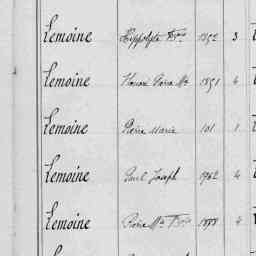 Lemoine Hippolyte Frois 1852 3
Lemoine Pierre Me 1851 4
Lemoine Pierre Marie 101 1
Lemoine Paul Joseph 1962 4
Lemoine Pierre Me Fois 1888 4